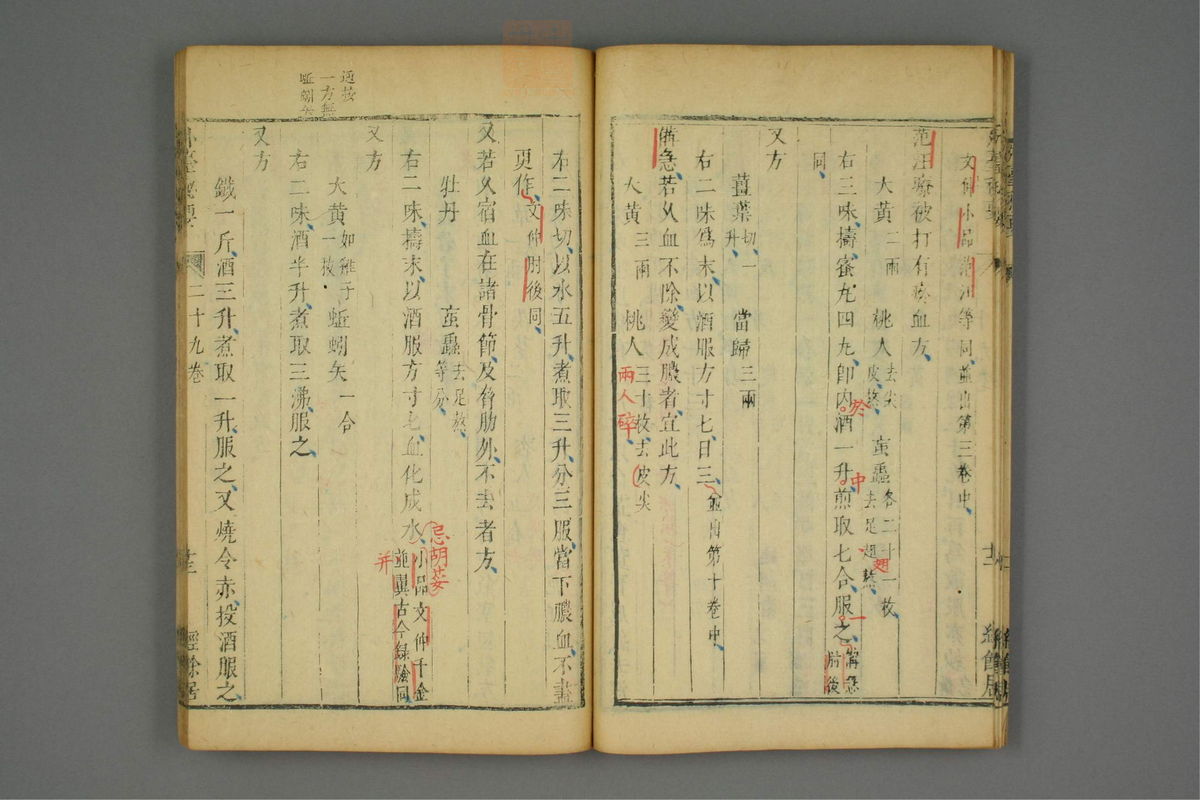 文仲小品范汪等同並出第三卷中
范汪療被打有瘀血方
大黃二兩 桃人去尖皮熬 䖟蟲各二十一枚去足翅熬
翅
右三味擣蜜丸四丸卽內酒一升煎取七合服之備急肘後
於
中
一
同
又方
薑葉切一升 當歸三兩
右二味爲末以酒服方寸匕日三並出第十卷中
備急若久血不除變成膿者宜此方
大黃三兩 桃人三十枚去皮尖
兩人碎
右二味切以水五升煮取三升分三服當下膿血不盡
更作文仲肘後同
又若久宿血在諸骨節及脅肋外不去者方
牡丹 䖟蟲去足熬等分
右二味擣末以酒服方寸匕血化成水小品文仲千金並翼古今錄驗同
忌胡荽
并
又方
大黃如雞子一枚 蚯蚓矢一合
右二味酒半升煮取三沸服之
又方
鐵一斤酒三升煮取一升服之又燒令赤投酒服之
一方無
外臺秘要 二十九卷
經餘居